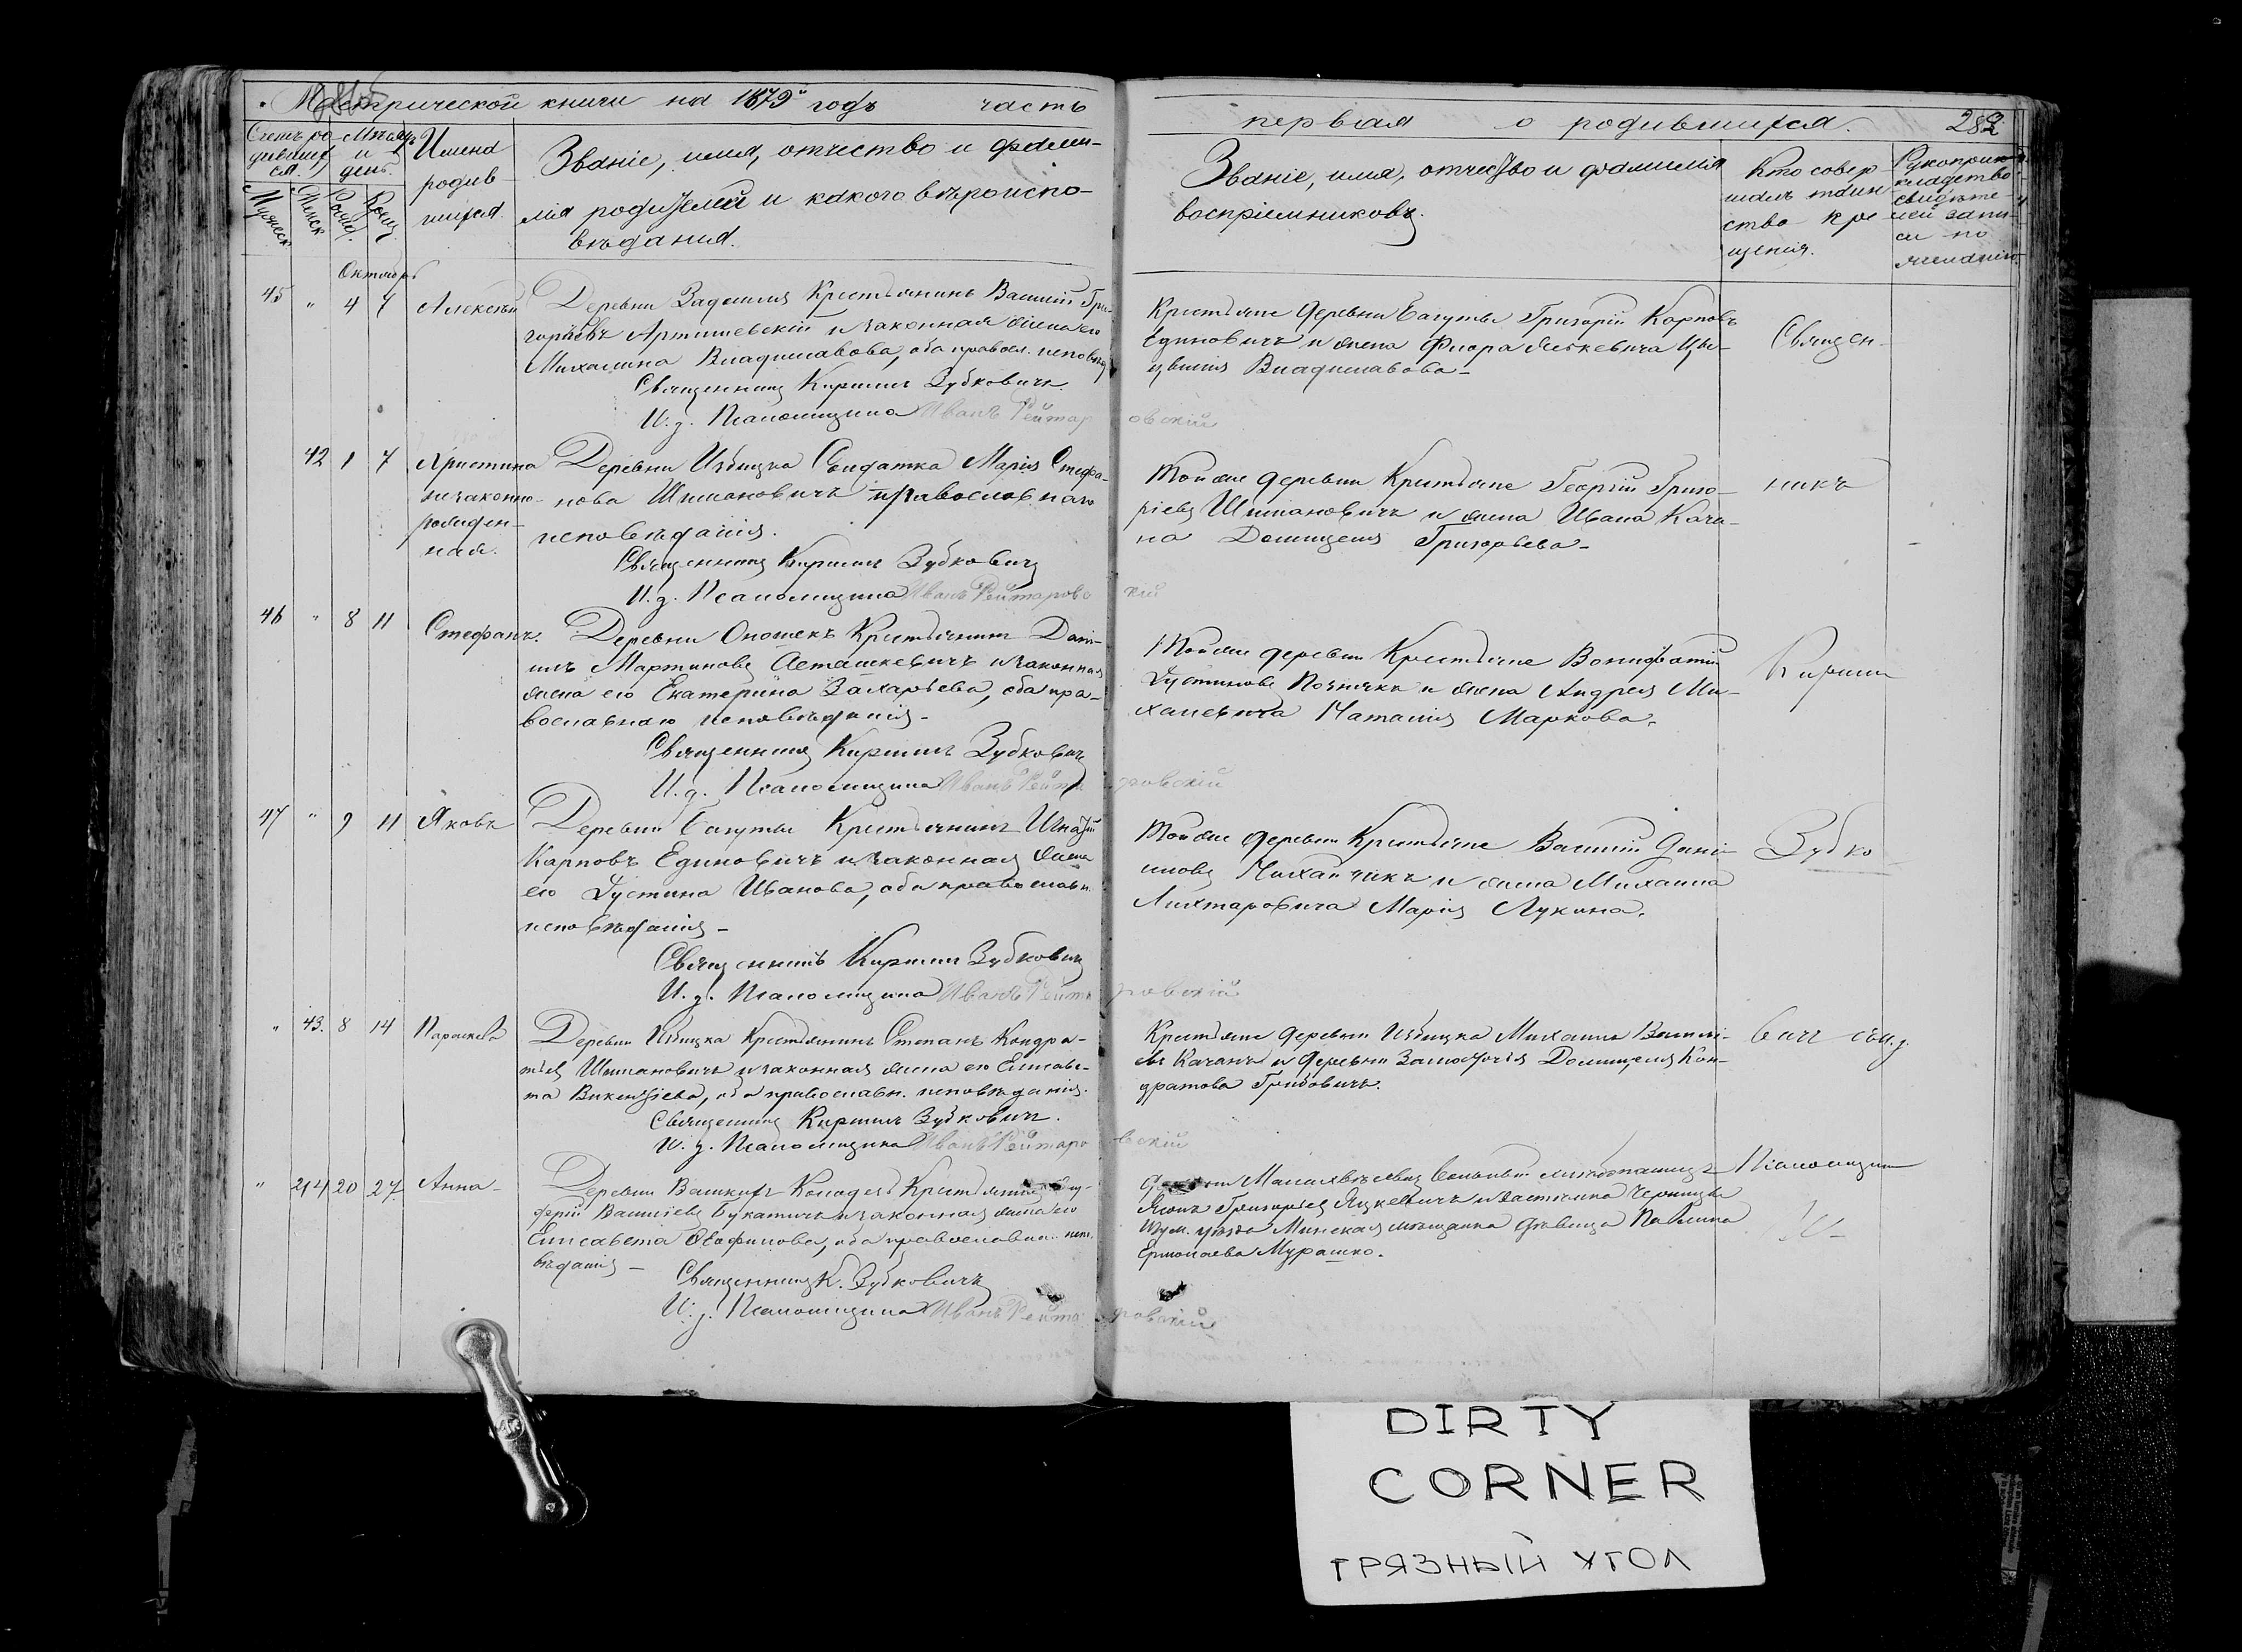 Метрической книги на 1879й годъ часть
первая о родившихся. 282
Счетъ ро-
дивших
ся.
Мѣсяцъ
и
день.
Мужеск
Женск
Рожд.
Крещ.
Имена
родив-
шихся
Званіе, имя, отчество и фами-
лія родителей и какого вѣроиспо-
вѣданія.
Званіе, имя, отчество и фамилія
воспріемниковъ.
Кто совер-
шалъ таин
ство кре
щенія.
Рукопри-
кладство
свидѣте-
лей запи-
си по
желанію.
Октябрь
45 " 4 7 Алексѣй
Деревни Крестьянинъ Василій Гри-
горьевъ Артишевскій и законная жена его
Михалина Владиславова, оба правосл. исповѣд
Священникъ Кириллъ Зубковичъ.
И. д. Псаломщика Иванъ Рейтаровскій
Крестьяне деревни Багуты Григорій Карповъ
Единовичъ и жена Флора
Владиславова-
Священ-
42 1 7 Христина
незаконно-
рожден-
ная.
Деревни Избицка Солдатка Марія Стефа-
нова Шимановичъ православнаго
исповѣданія.
Священникъ Кириллъ Зубковичъ
И. д. Псаломщика Иванъ Рейтаровскій
Той же деревни Крестьяне Георгій Григо-
ріевъ Шимановичъ и жена Ивана Кача-
на Домицеля Григорьева-
никъ
46 " 8 11 Стефанъ.
Деревни Оношекъ Крестьянинъ Дани-
илъ Мартиновъ Асташкевичъ и законная
жена его Екатерина Захарьева, оба пра-
вославнаго исповѣданія-
Священникъ Кириллъ Зубковичъ
И. д. Псаломщика Иванъ Рейтаровскій
Той же деревни Крестьяне
Іустиновъ и жена Андрея Ми-
халевича Наталія Маркова.
Кирилл
47 " 9 11 Яковъ
Деревни Багуты Крестьянинъ Игнатій
Карповъ Единовичъ и законная жена
его Іустина Иванова, оба православн.
исповѣданія-
Священникъ Кириллъ Зубковичъ
И. д. Псаломщика Иванъ Рейтаровскій
Той же деревни Крестьяне Василій Дані-
иловъ и жена Михаила
Лихтаровича Марія Лукина.
Зубко
" 43. 8 14 Параскева
Деревни Избицка Крестьянинъ Степанъ Кондра-
тьевъ Шимановичъ и законная жена его Елисаве-
та Викентіева, оба православн. исповѣданія.
Священникъ Кириллъ Зубковичъ.
И. д. Псаломщика Иванъ Рейтаровскій
Крестьяне деревни Избицка Михаилъ Василі-
евъ Качанъ и деревни Замосточья Домицеля Кон-
дратова Грибовичъ.
вичъ съ и. д.
" 44 20 27 Анна-
Деревни Крестьянинъ
Василіевъ Букатичъ и законная жена его
Елисавета , оба православн. испо-
вѣданія-
Священникъ К. Зубковичъ
И. д. Псаломщика Иванъ Рейтаровскій
Григорьевъ Яцкевичъ и
Игум. уѣзда Минская мѣщанка дѣвица Павлина
Ермолаева Мурашко.
Псаломщик
DIRTY
CORNER
ГРЯЗНЫЙ УГОЛ